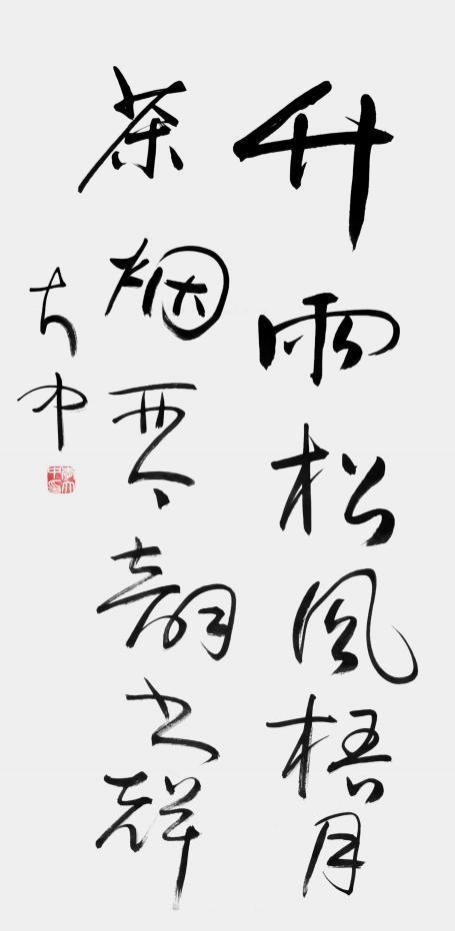 竹雨松風梧月
茶烟琴韵书聲
中